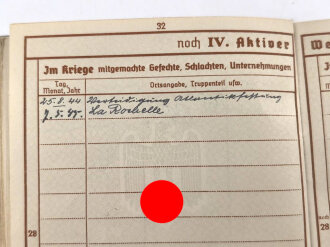 32
noch IV. Aktiver
Im Kriege mitgemachte Gefechte, Schlachten, Unternehmungen
Tag, Monat, Jahr
Ortsangabe, Truppenteil usw.
25.8.44 Verteidigung Atlantikfestung
7.5.45. La Rochelle
28